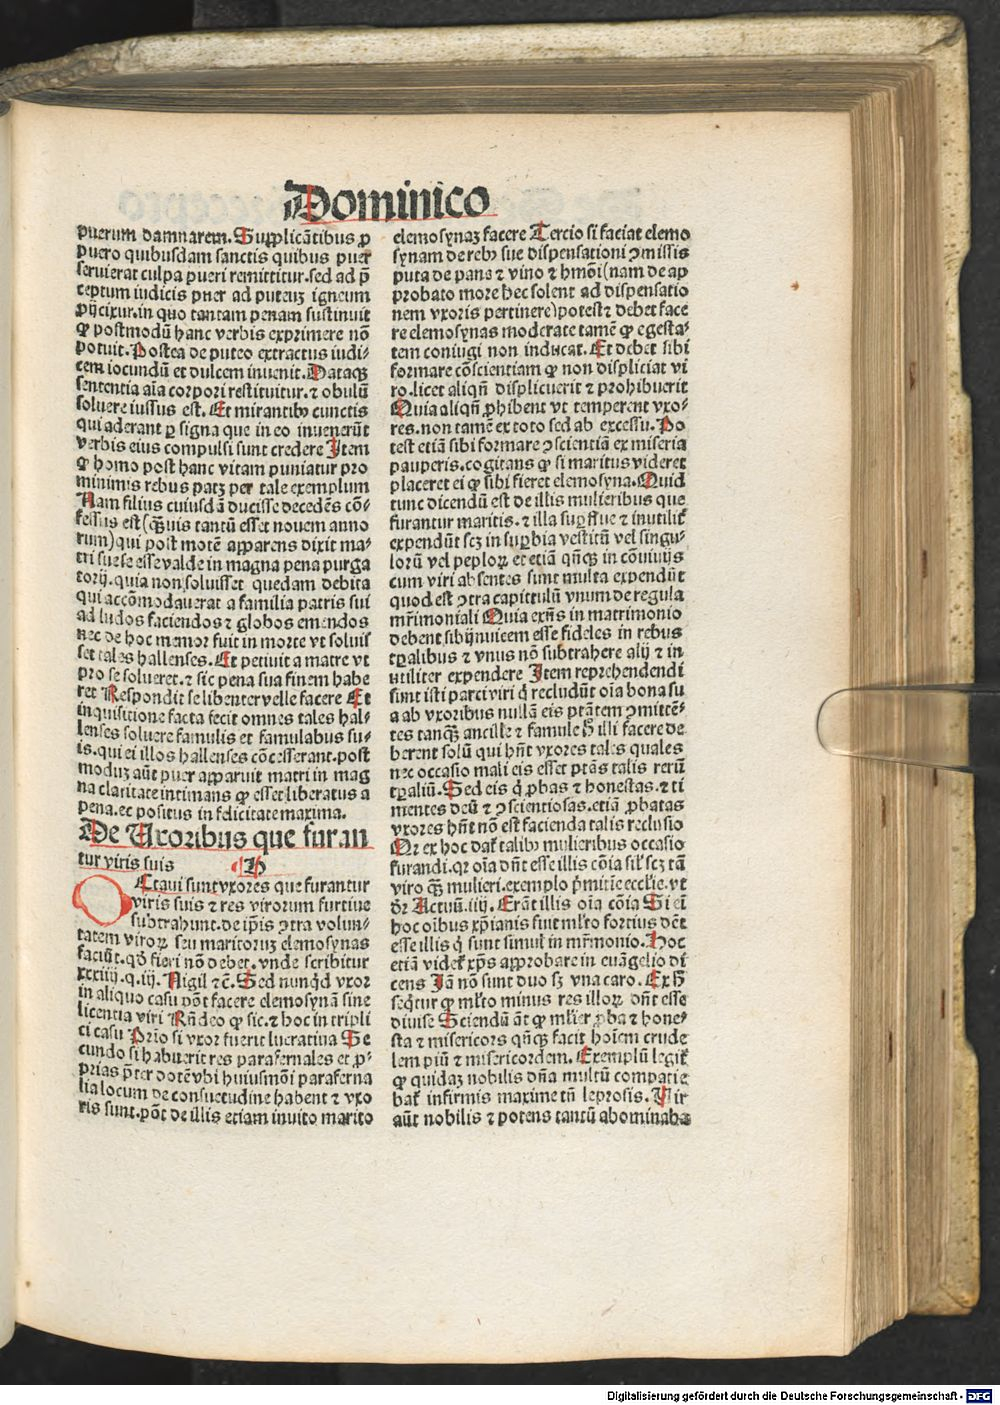 Dominico
puerum damnarem. Supplicātibus ꝓ
puero quibusdam sanctis quibus puer
seruierat culpa pueri remittitur. sed ad p̄
ceptum iudicis puer ad puteuꝫ igneum
ꝓijcitur. in quo tantam penam sustinuit
ꝙ postmodū hanc verbis exprimere nō
potuit. Postea de puteo extractus iudi⸗
cem iocundū et dulcem inuenit. Dataqꝫ
sententia aīa corpori restituitur. ⁊ obulū
soluere iussus est. Et mirantibꝰ cunctis
qui aderant ꝑ signa que in eo inuenerūt
verbis eius compulsi sunt credere Item
ꝙ homo post hanc vitam puniatur pro
minimis rebus patꝫ per tale exemplum
Nam filius cuiusdā ducisse decedēs cō⸗
fessus est (q̄ꝫuis tantū esset nouem anno
rum) qui post motē apparens dixit ma⸗
tri sue se esse valde in magna pena purga
torij. quia non soluisset quedam debita
qui accōmodauerat a familia patris sui
ad ludos faciendos ⁊ globos emendos
nec de hoc memor fuit in morte vt soluis
set tales hallenses. Et petiuit a matre vt
pro se solueret. ⁊ sic pena sua finem habe
ret Respondit se libenter velle facere Et
inquisitione facta fecit omnes tales hal⸗
lenses soluere famulis et famulabus su⸗
is. qui ei illos hallenses cōcesserant. post
moduꝫ aūt puer apparuit matri in mag
na claritate intimans ꝙ esset liberatus a
pena. et positus in felicitate maxima.
De Uxoribus que furan
tur viris suis ¶ H
Ctaui sunt vxores que furantur
viris suis ⁊ res virorum furtiue
subtrahunt. de ip̄is ꝯtra volun⸗
tatem viroꝝ seu maritoruꝫ elemosynas
faciūt. qd̄ fieri nō debet. vnde scribitur
xxxiij. q. iij. Nigil ⁊c̄. Sed nunqͥd vxor
in aliquo casu pōt facere elemosynā sine
licentia viri Rn̄deo ꝙ sic. ⁊ hoc in tripli
ci casu Prīo si vxor fuerit lucratiua Se
cundo si habuerit res parafernales et ꝓ⸗
prias p̄ter dotē vbi huiusmōi paraferna
lia locum de consuetudine habent ⁊ vxo
ris sunt. pōt de illis etiam inuito marito
elemosynaꝫ facere Tercio si faciat elemo
synam de rebꝰ sue dispensationi ꝯmissis
puta de pane ⁊ vino ⁊ hmōi (nam de ap
probato more hec solent ad dispensatio
nem vxoris pertinere) potest ⁊ debet face
re elemosynas moderate tamē ꝙ egesta⸗
tem coniugi non inducat. Et debet sibi
formare cōscientiam ꝙ non displiciat vi
ro. licet aliqn̄ displicuerit ⁊ prohibuerit
Quia aliqn̄ ꝓhibent vt temperent vxo⸗
res. non tamē ex toto sed ab excessu. Po
test etiā sibi formare ꝯscientiā ex miseria
pauperis. cogitans ꝙ si maritus videret
placeret ei ꝙ sibi fieret elemosyna. Quid
tunc dicendū est de illis mulieribus que
furantur maritis. ⁊ illa suꝑflue ⁊ inutilit̄
expendūt scꝫ in suꝑbia vestitū vel singu⸗
lorū vel peploꝝ et etiā qn̄qꝫ in cōuiuijs
cum viri absentes sunt multa expendūt
quod est ꝯtra capitulū vnum de regula
mr̄imoniali Quia exn̄s in matrimonio
debent sibijnuicem esse fideles in rebus
tꝑalibus ⁊ vnus nō subtrahere alij ⁊ in
utiliter expendere Item reprehendendi
sunt isti parci viri qͥ recludūt oīa bona su
a ab vxoribus nullā eis ptātem ꝯmittē⸗
tes tanqꝫ ancille ⁊ famule Hͦ illi facere de
berent solū qui hn̄t vxores tales quales
nec occasio mali eis esset ptās talis rerū
tꝑaliū. Sed eis qͥ ꝓbas ⁊ honestas. ⁊ ti
mentes deū ⁊ ꝯscientiosas. etiā ꝓbatas
vxores hn̄t nō est facienda talis reclusio
Qr ex hoc dat̄ talibꝰ mulieribus occasio
furandi. qr oīa dn̄t esse illis cōia sil̄r scꝫ tā
viro qꝫ mulieri. exemplo p̄mitiē eccl̄ie. vt
dr̄ Actuū. iiij. Erāt illis oīa cōia Si eī
hoc oībus xp̄ianis fiat ml̄to fortius dēt
esse illis qͥ sunt simul̄ in mr̄monio. Hoc
etiā videt̄ xp̄s approbare in euāgelio di
cens Iā nō sunt duo sꝫ vna caro. Ex hͦ
seqͥtur ꝙ ml̄to minus res illoꝝ dn̄t esse
diuise Sciendū āt ꝙ ml̄ier ꝓba ⁊ hone⸗
sta ⁊ misericors qn̄qꝫ facit hoīem crude
lem piū ⁊ misericordem. Exemplū legit̄
ꝙ quidaꝫ nobilis dn̄a multū compatie
bat̄ infirmis maxime tn̄ leprosis. Vir
aūt nobilis ⁊ potens tantū abominaba
Digitalisierung gefördert durch die Deutsche Forschungsgemeinschaft - DFG